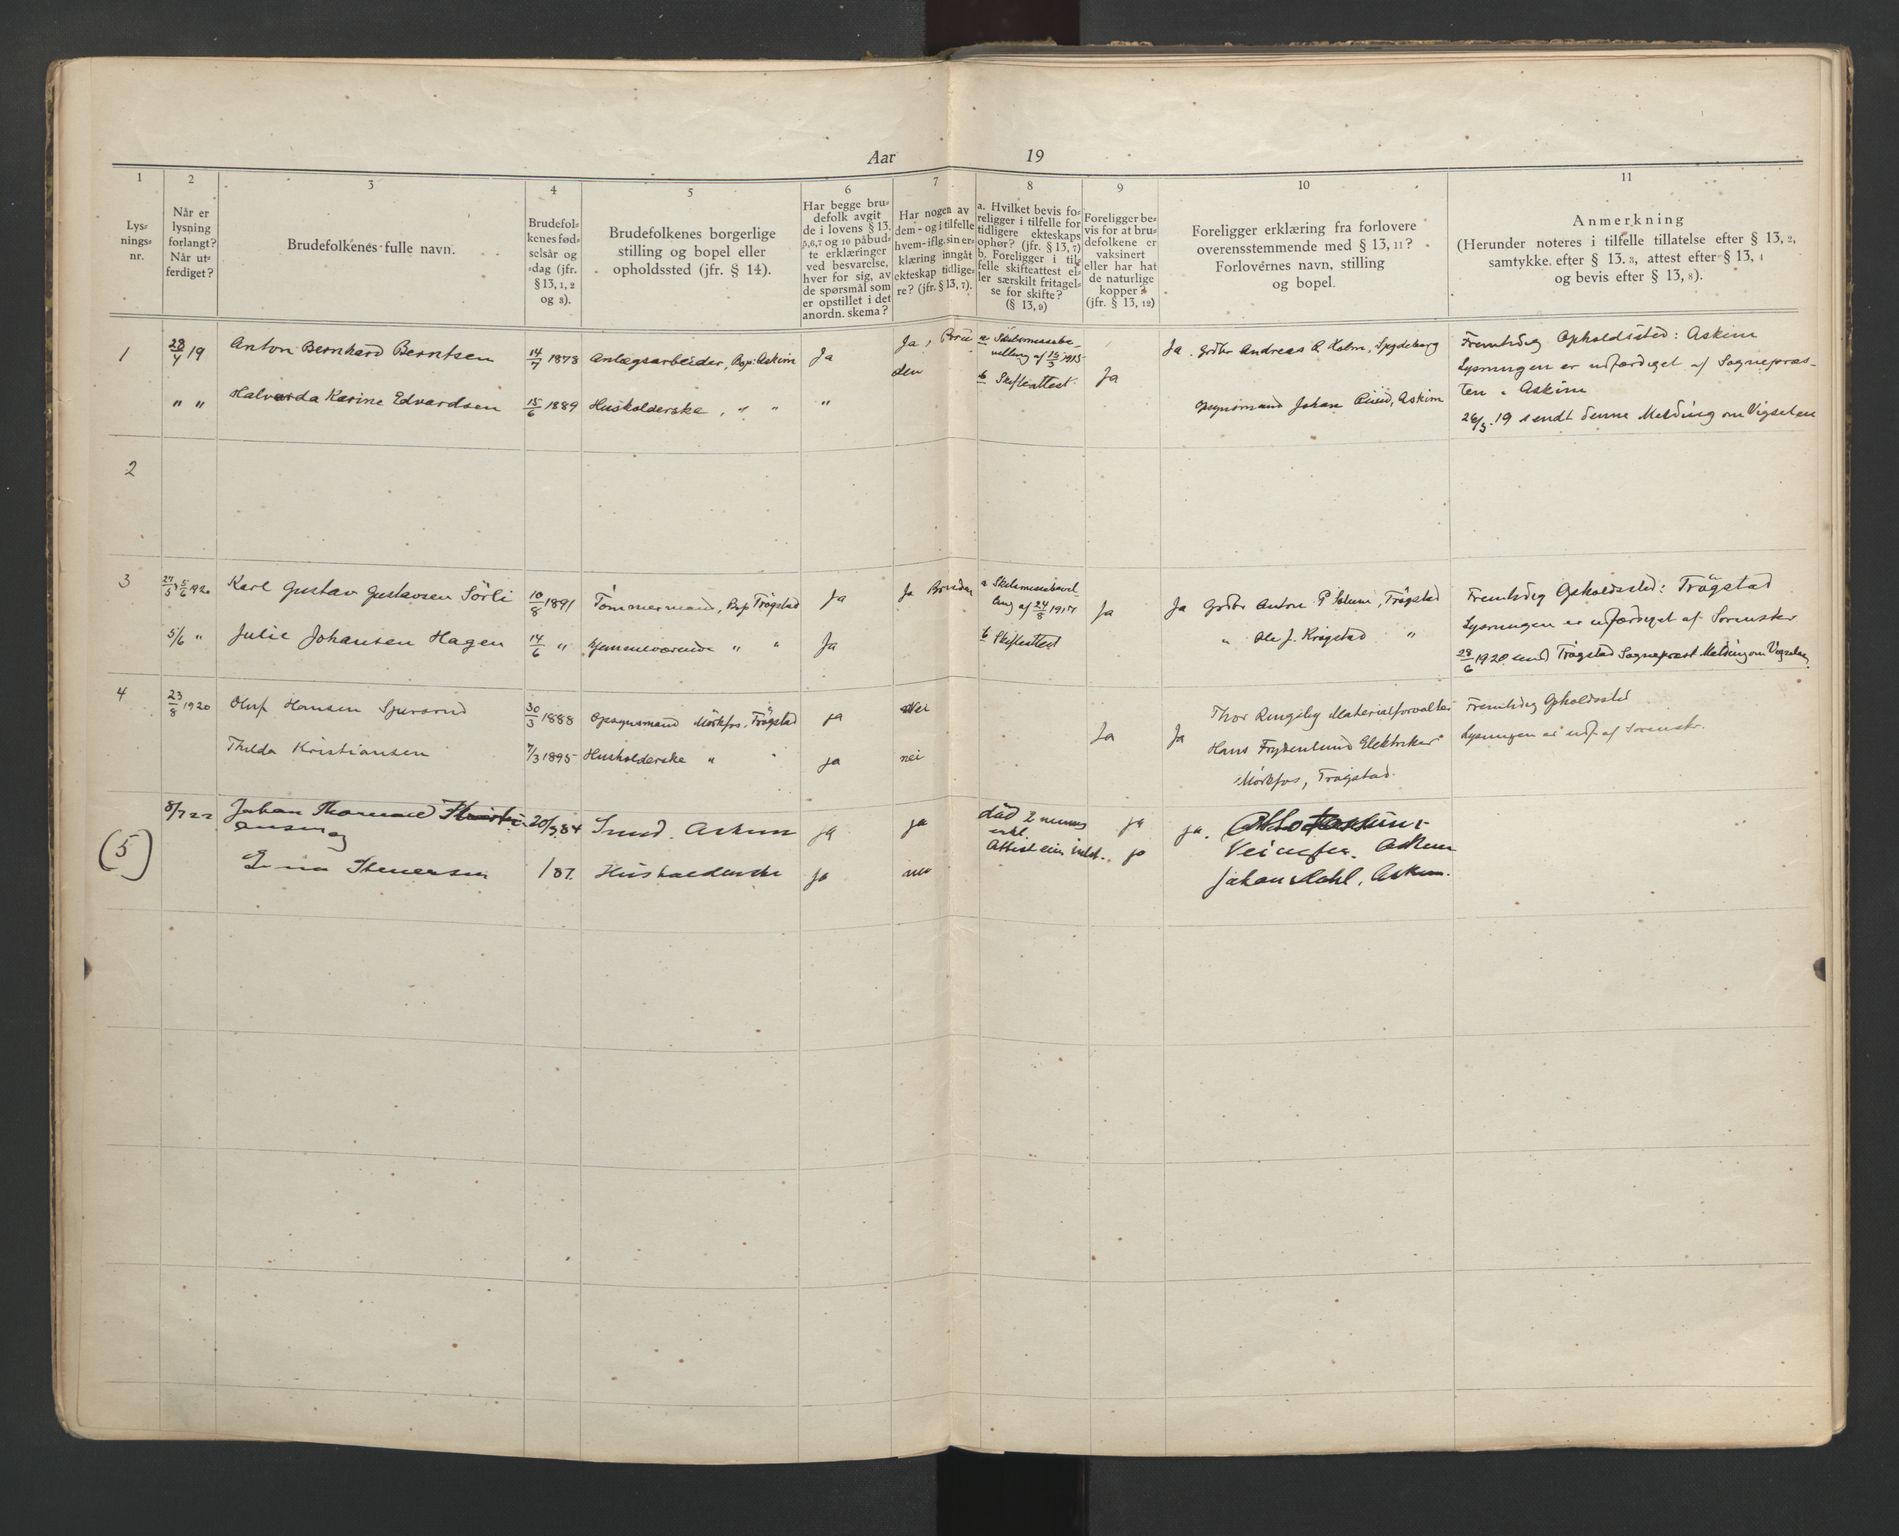 Aar 19
1
Lysningsnr.
2
Når er
lysning
forlangt?
Når utferdiget?
3
Brudefolkenes fulle navn.
4
Brudefolkenes fødselsår og
dag (jfr.
§ 13, 1, 2
og 3).
5
Brudefolkenes borgerlige
stilling og bopel eller
opholdssted (jfr. § 14).
6
Har begge brudefolk avgit
de i lovens § 13.
5,6,7 og 10 påbudte erklæringer
ved besvarelse,
hver for sig, av
de spørsmål som
er opstillet i det
anordn. skema?
7
Har nogen av
dem - og i tilfelle
hvem - iflg. sin erklæring inngåt
ekteskap tidligere? (jfr. § 13, 7).
8
a. Hvilket bevis foreligger i tilfelle for
tidligere ekteskaps
ophør? (jfr. § 13, 7)
b. Foreligger i tilfelle skifteattest eller særskilt fritagelse for skifte?
(§ 13, 9)
9
Foreligger bevis for at brudefolkene er
vaksinert
eller har hat
de naturlige
kopper?
(jfr. § 13, 12)
10
Foreligger erklæring fra forlovere
overensstemmende med § 13, 11?
Forlovernes navn, stilling
og bopel.
11
Anmerkning
(Herunder noteres i tilfelle tillatelse efter § 13, 2,
samtykke. efter § 13. 3, attest efter § 13, 4
og bevis efter § 13, 8).
1 28/4 19 Anton Bernhard Berntsen 14/7 1873 Anlægsarbeider, Bop: Askim Ja Ja, Bru- a Skilsmissebe- Ja. Grdbr Andreas A. Holm, Spydeberg Fremtidig Opholdssted: Askim
den villing af 15/3 1915 Lysningen er udfærdiget af Sognepræs-
" " Halvarda Karine Edvardsen 15/6 1889 Husholderske, " " " b Skifteattest. Ja Johan, Askim ten i Askim
26/5. 19 sendt denne Melding om Vigselen
2
3 5/6 1920 Karl Gustav Gustavsen Sörli 10/8 1891 Tömmermand, Bop Trögstad Ja Ja Bruden a Skilsmissebevil- Ja Ja Grdbr Anton P Solum, Trögstad Fremtidig Opholdssted: Trögstad
ling af 24/8
5/6 " Julie Johansen Hagen 14/6 " hjemmeværende " " Ja b Skifteattest " Ole J. Krogstad " Lysningen er udfærdiget af Sorenskr
28/6 1920 sendt Trögstad Sogneprest Melding om Vigselen
4 23/8 1920 Oluf Hansen 30/3 1888 Opsynsmand Mörkfos, Trögstad ja Nei Ja Ja Thor Ringsby Materialforvalter Fremtidig Opholdssted
Thilda Kristiansen 7/3 1895 Husholderske " " ja nei Hans Frydenlund Elektriker Lysningen er udf af Sorenskr.
Mörkfos, Trögstad.
(5) 8/7 22 Johan 20/9 84 Smed. Askim ja ja død ja ja.
og erkl. Askim
Stenersen /87. Husholderske ja nei Attest ja Johan Dahl, Askim.